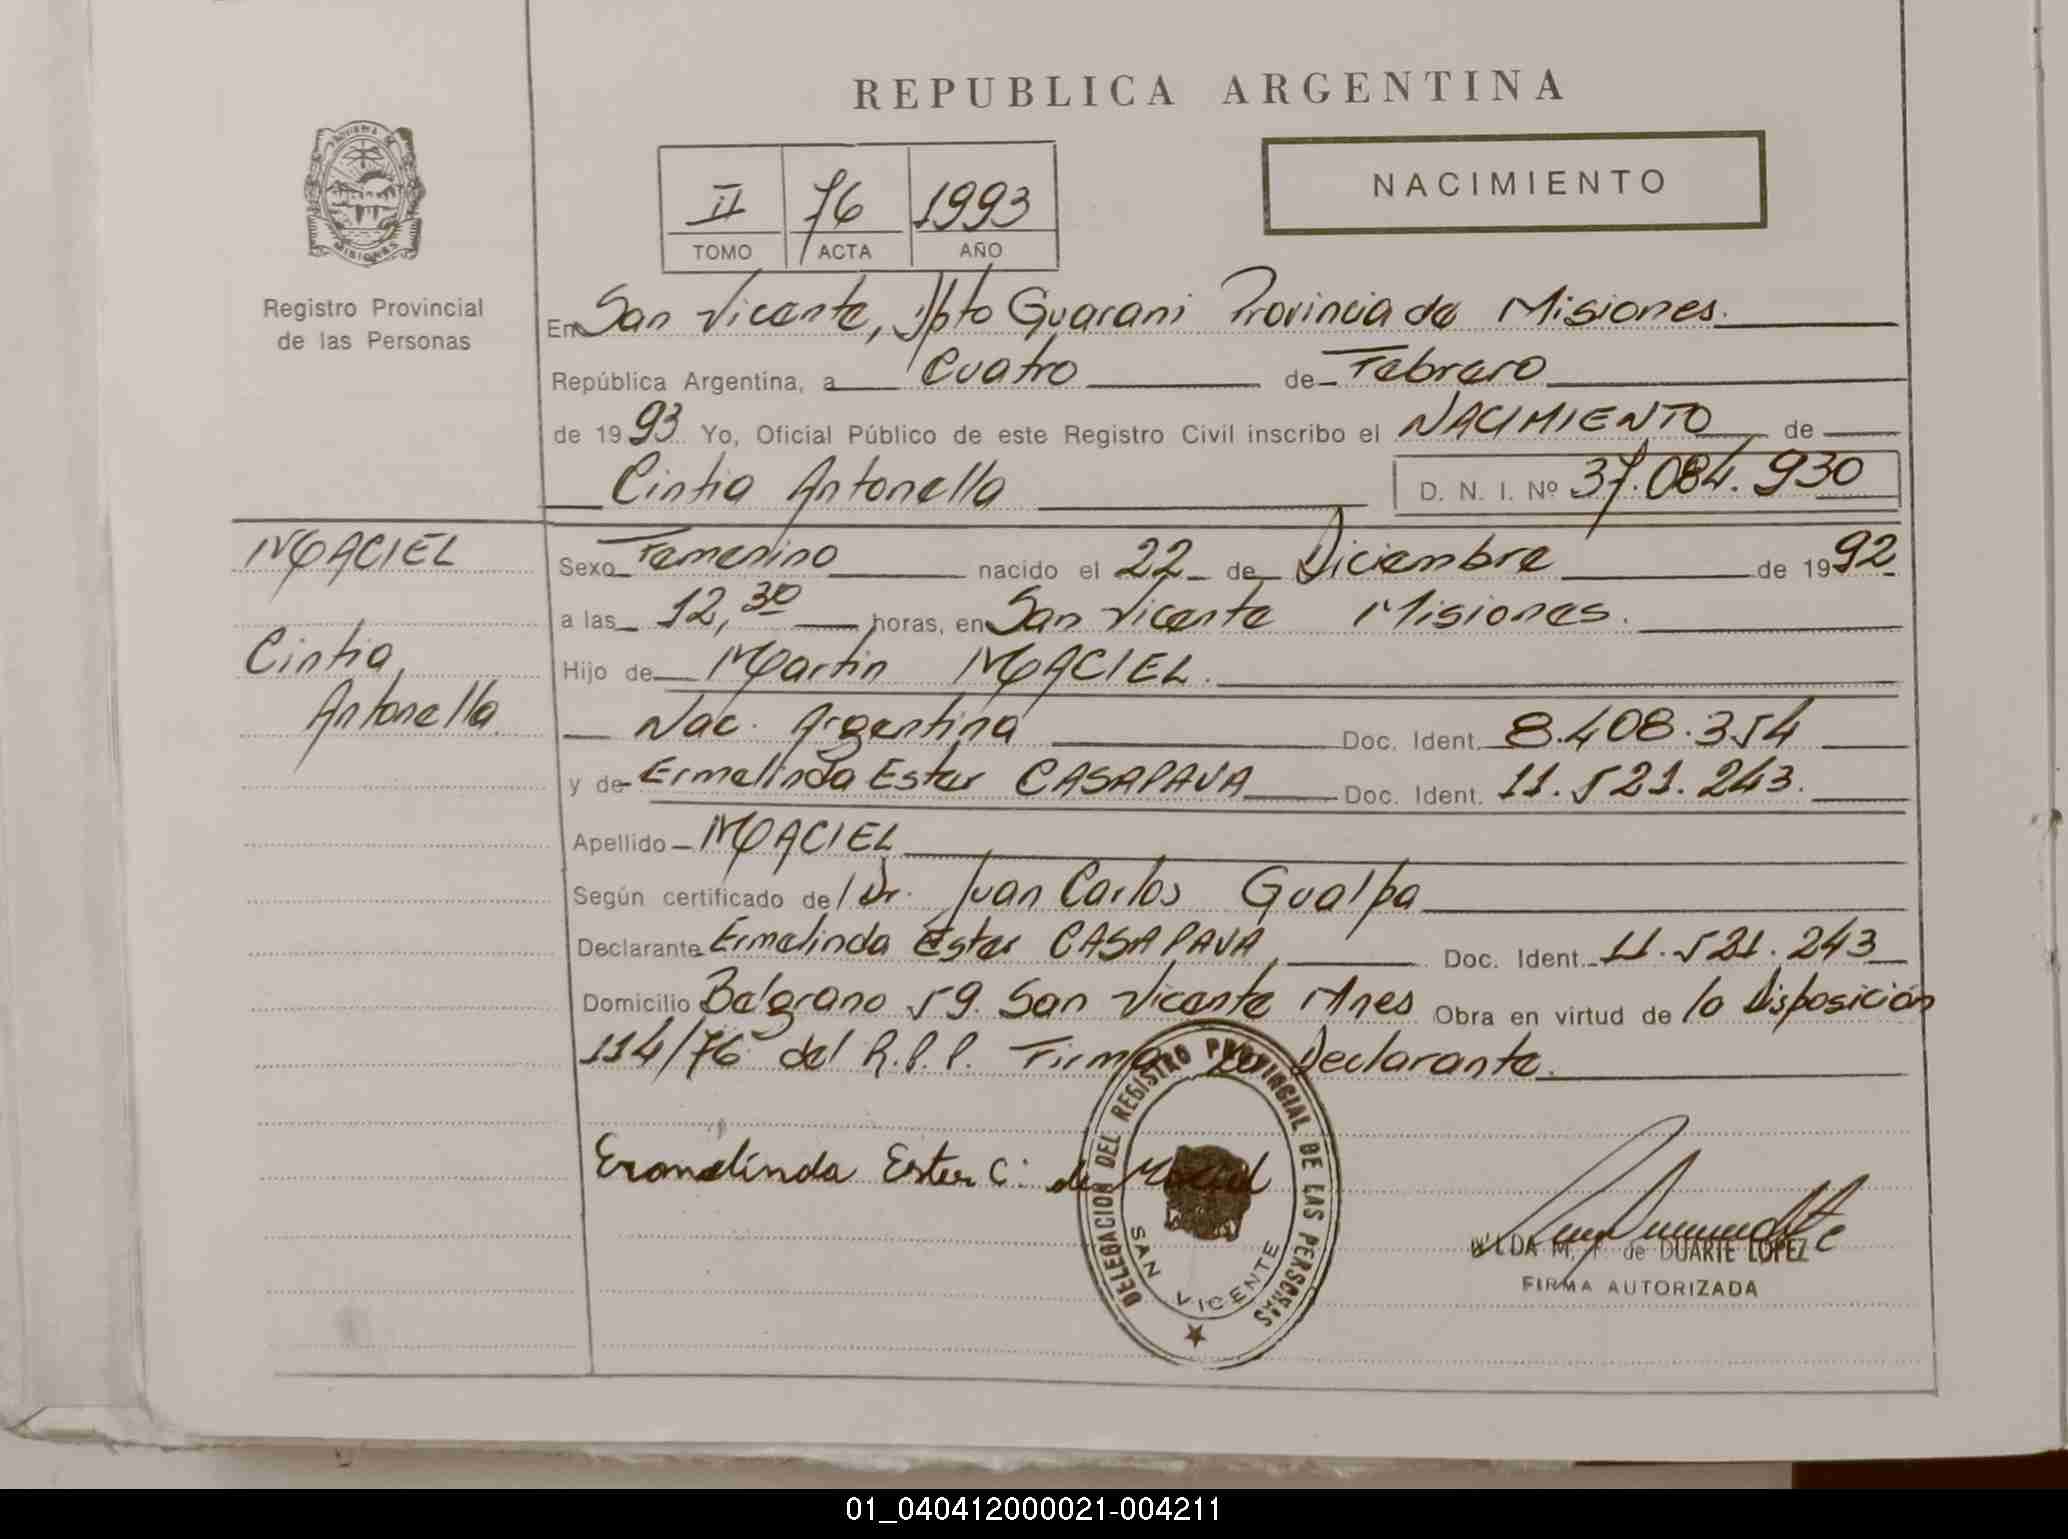 REPUBLICA ARGENTINA
NACIMIENTO
II 76 1993
TOMO ACTA AÑO
MISIONES
Registro Provincial
de las Personas
En San Vicente, Dpto Guarani Provincia de Misiones.
República Argentina, a Cuatro de Febrero
de 1993 Yo, Oficial Público de este Registro Civil inscribo el NACIMIENTO de
Cintia Antonella D. N. I. Nº 37.084.930
MACIEL
Cintia
Antonella
Sexo Femenino nacido el 22 de Diciembre de 1992
a las 12,30 horas, en San Vicente Misiones.
Hijo de Martin MACIEL.
Nac. Argentina Doc. Ident. 8.408.354
y de Ermelinda Ester CASAPAVA Doc. Ident. 11.521.243.
Apellido MACIEL
Según certificado del Dr. Juan Carlos Gualpa
Declarante Ermelinda Ester CASAPAVA, Doc. Ident. 11.521.243
Domicilio Belgrano 59. San Vicente Mnes Obra en virtud de la Disposición
114/76 del R.P.P. Firma Declarante.
Ermelinda Ester C. de Maciel
DELEGACION DEL REGISTRO PROVINCIAL DE LAS PERSONAS
SAN VICENTE
de DUARTE LOPEZ
FIRMA AUTORIZADA
01_040412000021-004211